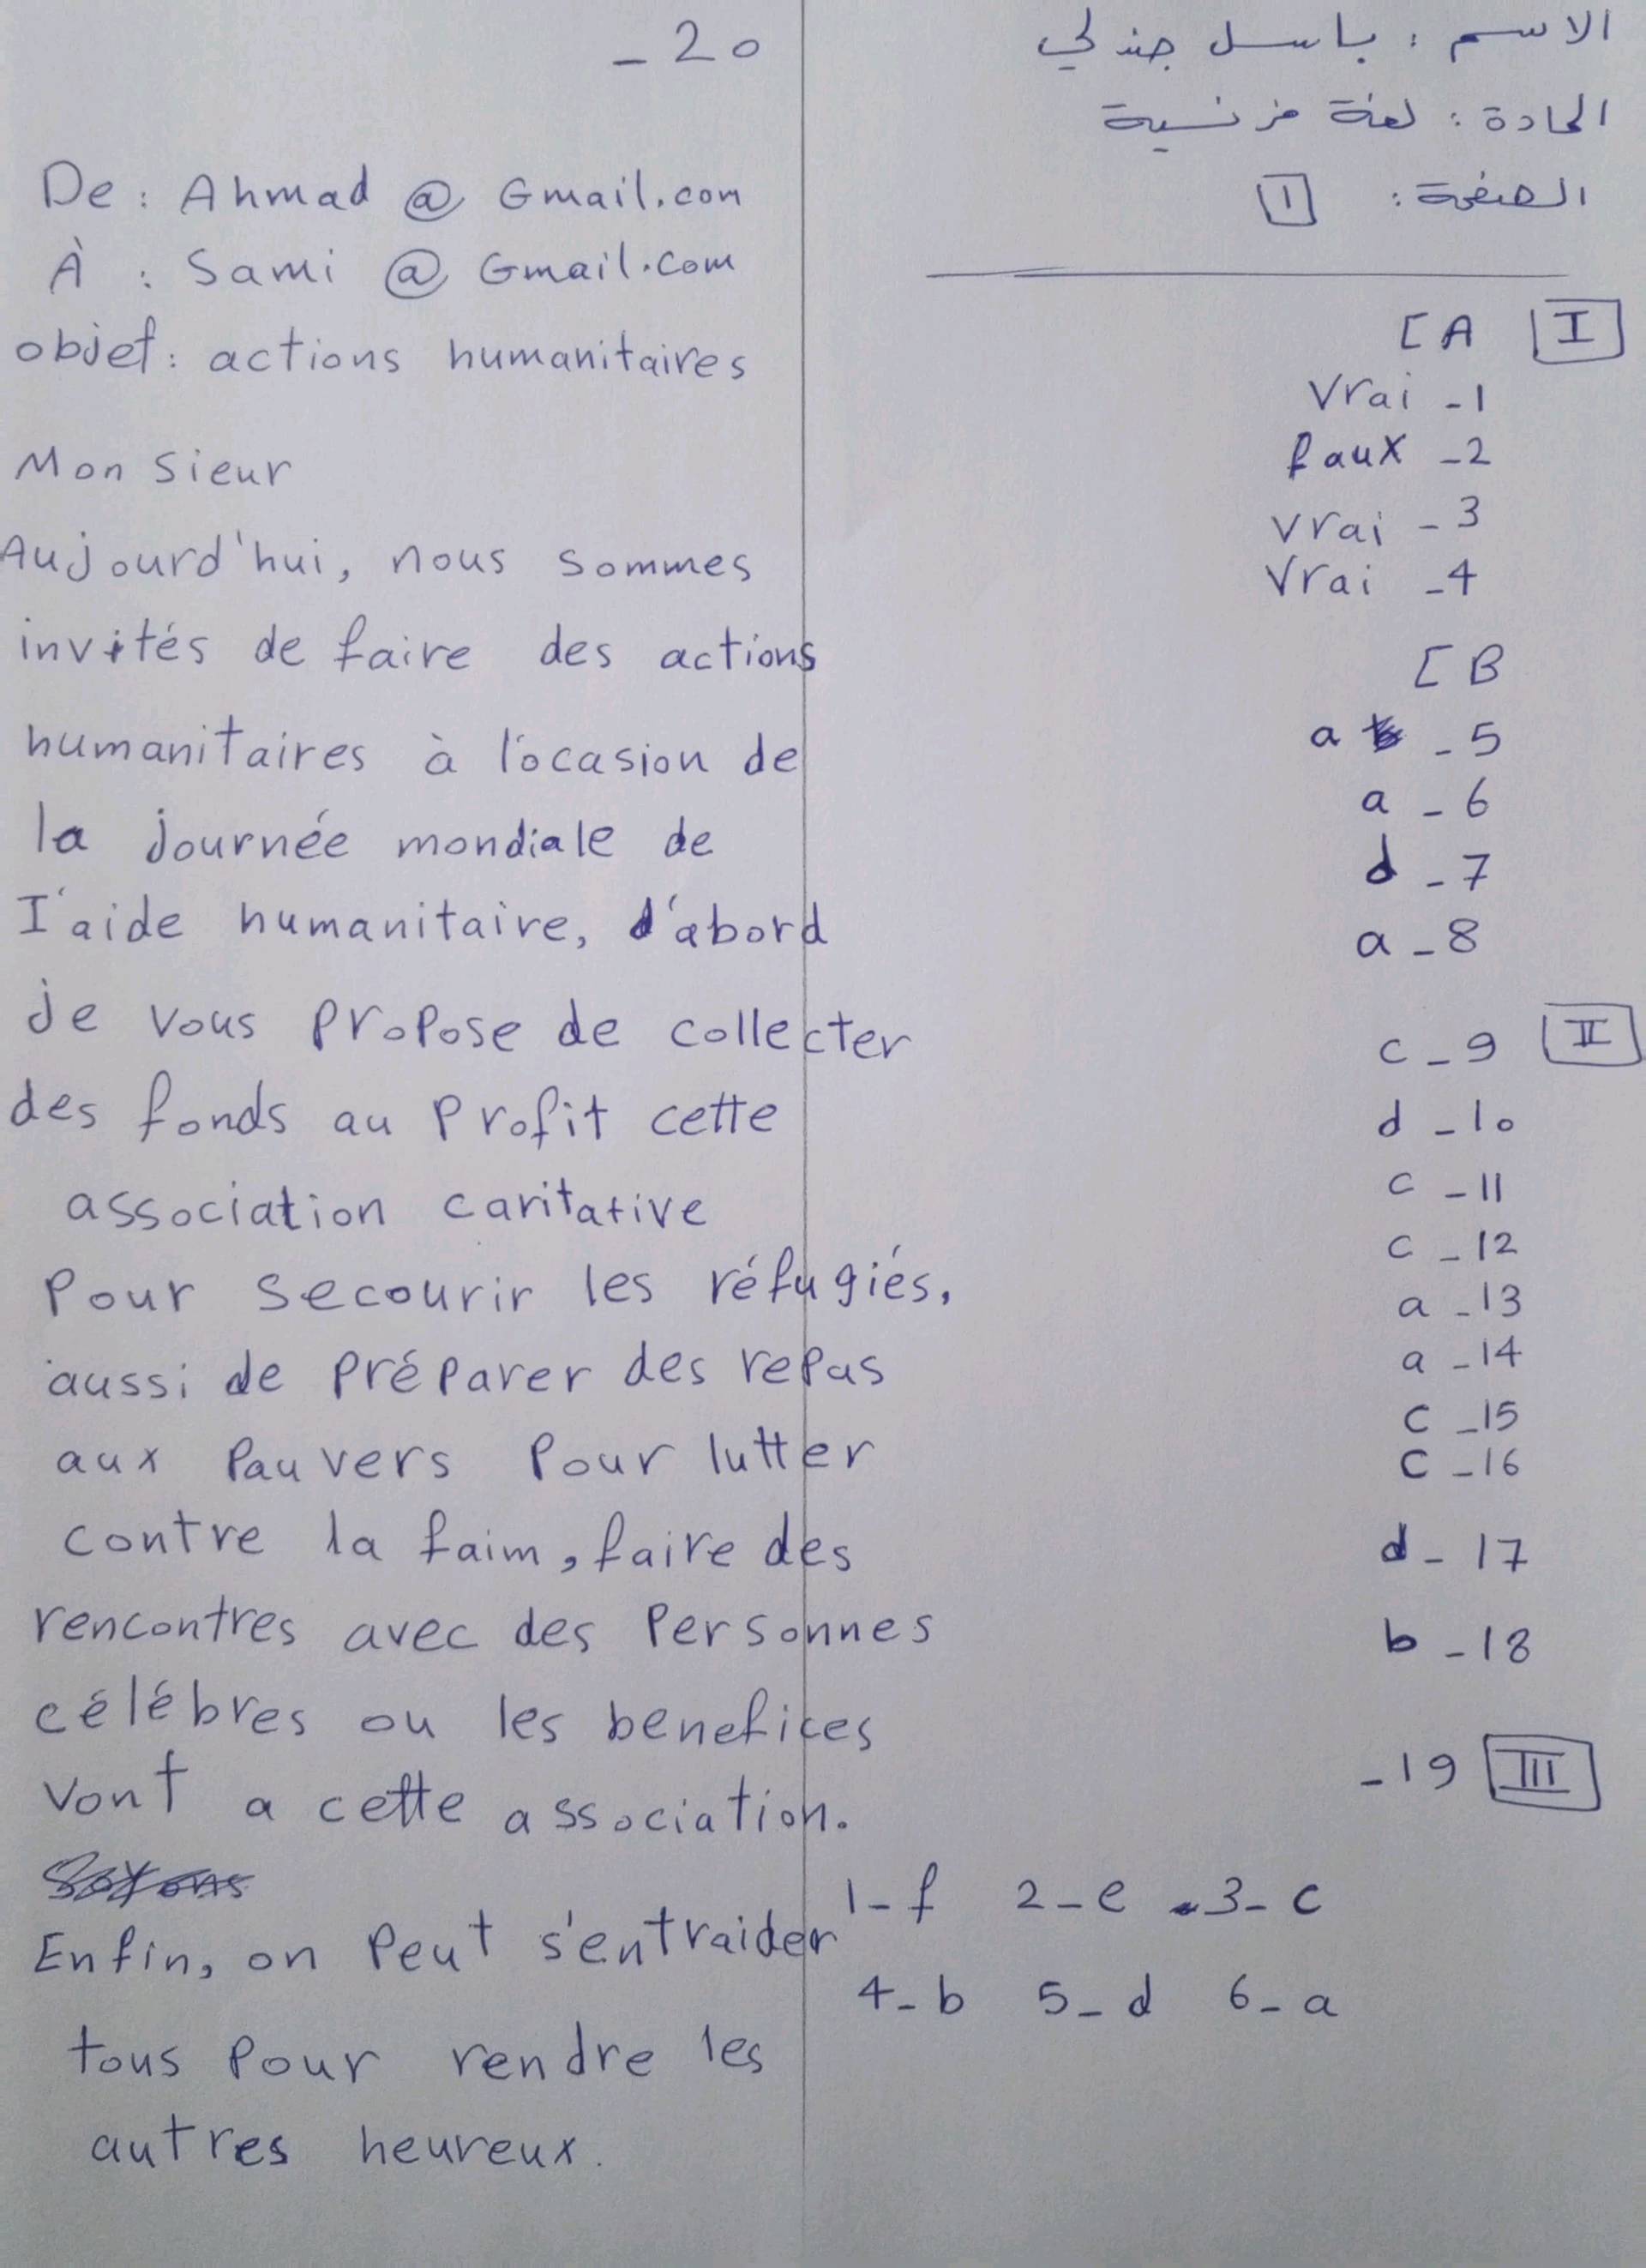 الاسم : باسل جندلي
المادة : لغة فرنسية
الصفحة : 1
I A ]
1- Vrai
2- faux
3- vrai
4- Vrai
B ]
5- a
6- a
7- d
8- a
II 9- c
10- d
11- c
12- c
13- a
14- a
15- c
16- c
17- d
18- b
III 19-
1-f 2-e 3-c
4-b 5-d 6-a
20-
De : Ahmad @ Gmail.com
À : Sami @ Gmail.com
objet : actions humanitaires
Monsieur
Aujourd'hui, nous sommes
invités de faire des actions
humanitaires à l'ocasion de
la journée mondiale de
l'aide humanitaire, d'abord
je vous propose de collecter
des fonds au profit cette
association caritative
pour secourir les réfugiés,
aussi de préparer des repas
aux pauvers pour lutter
contre la faim, faire des
rencontres avec des personnes
célébres ou les benefices
vont a cette association.
Enfin, on peut s'entraider
tous pour rendre les
autres heureux.